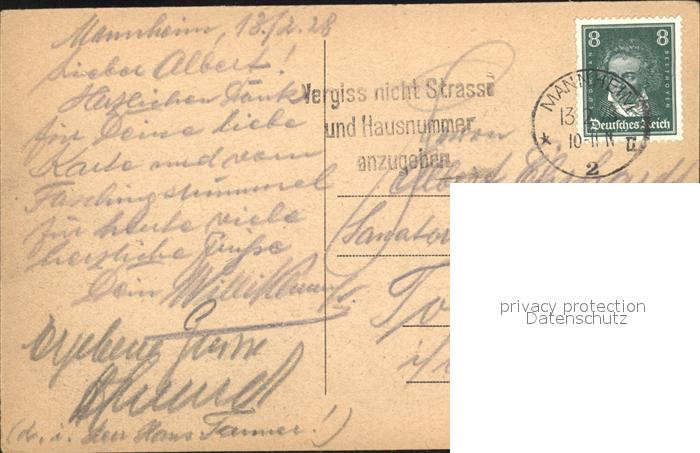 Mannheim, 13./2. 28
Lieber Albert!
Herzlichen Dank
für Deine liebe
Karte und vom
Faschingsrummel
für heute viele
herzliche Grüße
Dein Willi
Ergebene Grüsse
(d. i. Herr Hans Tanner!)
Vergiss nicht Strasse
und Hausnummer
anzugeben
8 8
LUDWIG VAN BEETHOVEN
Deutsches Reich
MANNHEIM
13.
10-11 N
* 2
Herrn
Albert
Sanator
To
i/
privacy protection
Datenschutz